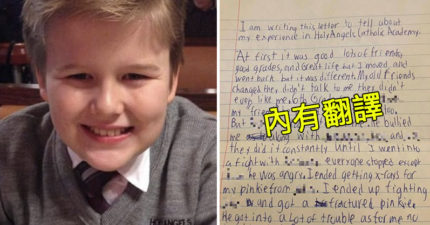 I am writing this letter to tell about
my experience in Holy Angels Catholic Academy.
At first it was good lots of friends,
good grades, and great life but I moved, and
went back but it was different. My old friends
changed they didn't talk to me they didn't
even like me.
my
內有翻譯
But he bullied
me with and
they did it constantly until I went into
a fight with everyone stopped except
he was angry. I ended getting x-rays for
my pinkie from I ended up fighting
and got a fractured pinkie
He got into a lot of trouble as for me no
ANGELS